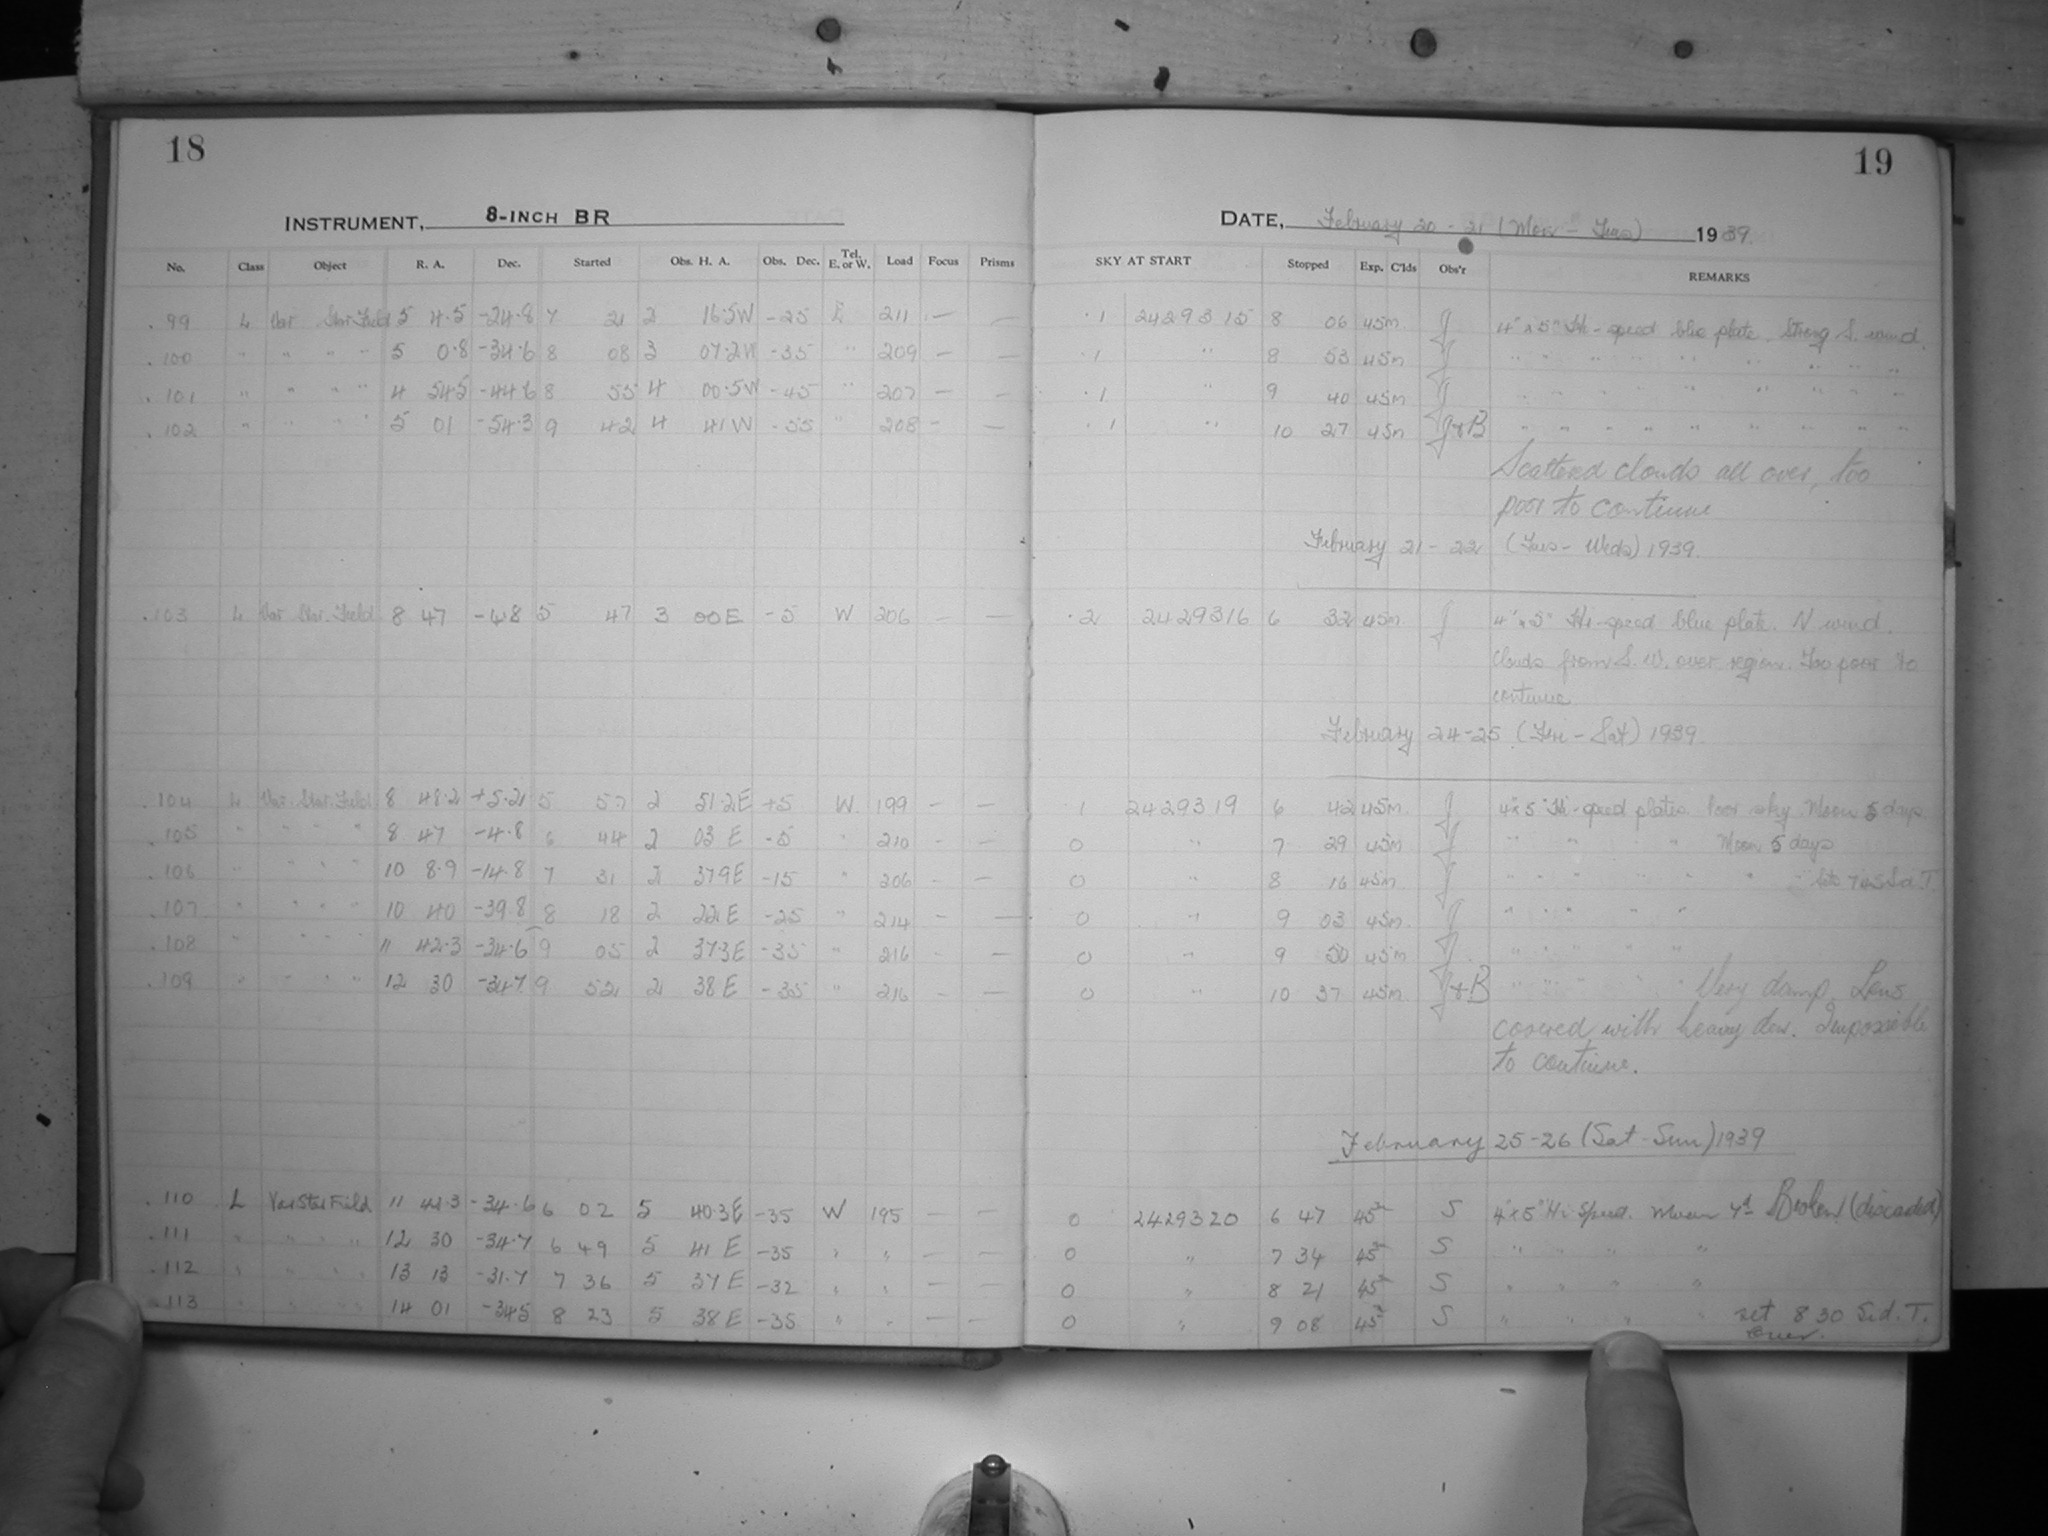 18
19
INSTRUMENT, 8-INCH BR
DATE, February 20 - 21 (Mon - Tues) 1939
No. Class Object R. A. Dec. Started Obs. H. A. Obs. Dec. Tel. E. or W. Load Focus Prisms SKY AT START Stopped Exp. C'lds Obs'r REMARKS
.99 L Var Star Field 5 4.5 -24.8 7 21 3 16.5W -25 E 211 — — .1 2429315 8 06 45m J 4"x5" Hi-speed blue plate. Strong S. wind.
.100 " " " " 5 0.8 -34.6 8 08 3 07.2W -35 " 209 — — .1 " 8 53 45m J " " " " " " " "
.101 " " " " 4 54.5 -44.6 8 55 4 00.5W -45 " 207 — — .1 9 40 45m J " " " " " " " "
.102 " " " " 5 01 -54.3 9 42 4 41W -55 " 208 — — .1 " 10 27 45m J+B " " " " " " " "
Scattered clouds all over, too
poor to continue
February 21 - 22 (Tues - Weds) 1939.
.103 L Var Star. Field 8 47 -4.8 5 47 3 00E -5 W 206 — — .2 2429316 6 32 45m J 4"x5" Hi-speed blue plate. N wind.
Clouds from S.W. over region. Too poor to
continue
February 24-25 (Fri - Sat) 1939.
.104 L Var. Star. Field 8 48.2 +5.21 5 57 2 51.2E +5 W. 199 — — 1 2429319 6 42 45m J 4"x5" Hi-speed plates. Poor sky. Moon 5 days.
.105 " " " " 8 47 -4.8 6 44 2 03 E -5 " 210 — — 0 " 7 29 45m J " " " " Moon 5 days
.106 " " " " 10 8.9 -14.8 7 31 2 37.9E -15 " 206 — — 0 " 8 16 45m J " " " " " " Sets 7 45 Sid T.
.107 " " " " 10 40 -39.8 8 18 2 22E -25 " 214 — — 0 " 9 03 45m. J " " " " "
.108 " " " " 11 42.3 -34.6 9 05 2 37.3E -35 " 216 — — 0 " 9 50 45m J " " " " "
.109 " " " " 12 30 -34.7 9 52 2 38 E -35 " 216 — — 0 " 10 37 45m. J+B " " " " " Very damp. Lens
covered with heavy dew. Impossible
to continue.
February 25-26 (Sat-Sun) 1939
.110 L Var Star Field 11 42.3 -34.6 6 02 5 40.3E -35 W 195 — — 0 2429320 6 47 45m S 4"x5" Hi Speed. Moon 7d Broken (discarded)
.111 " " " " 12 30 -34.7 6 49 5 41 E -35 " " — — 0 " 7 34 45m S " " " "
.112 " " " " 13 13 -31.7 7 36 5 37 E -32 " " — — 0 " 8 21 45m S " " " "
.113 " " " " 14 01 -34.5 8 23 5 38 E -35 " " — — 0 " 9 08 45m S " " " " set 8 30 Sid. T.
Over.